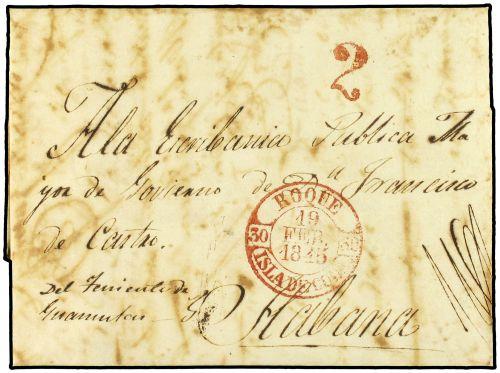 2
A la Escribania Publica Ma
yor de Govierno de Dⁿ Francisco
de Castro.
ROQUE
19
FEB.
1845
30 30
ISLA DE CUBA
Del Teniente de
Guamutas
Habana